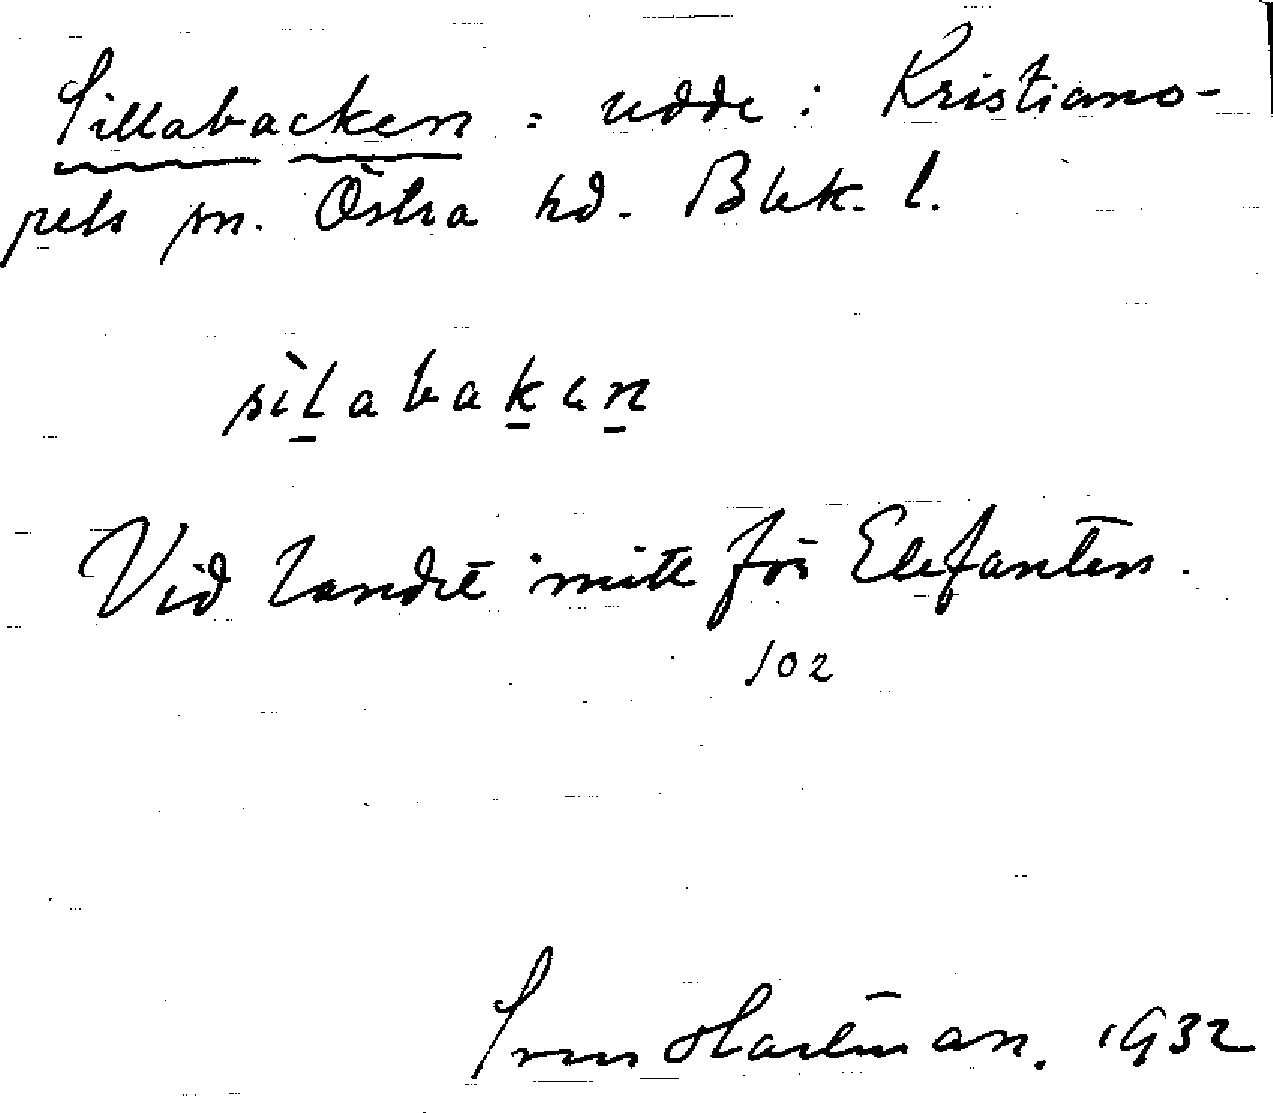 Sillabacken = udde i Kristiano-
pels sn. Östra hd. Blek. l.
sìlabakən
Vid landet mitt för Elefanten.
102
Hartman. 1932